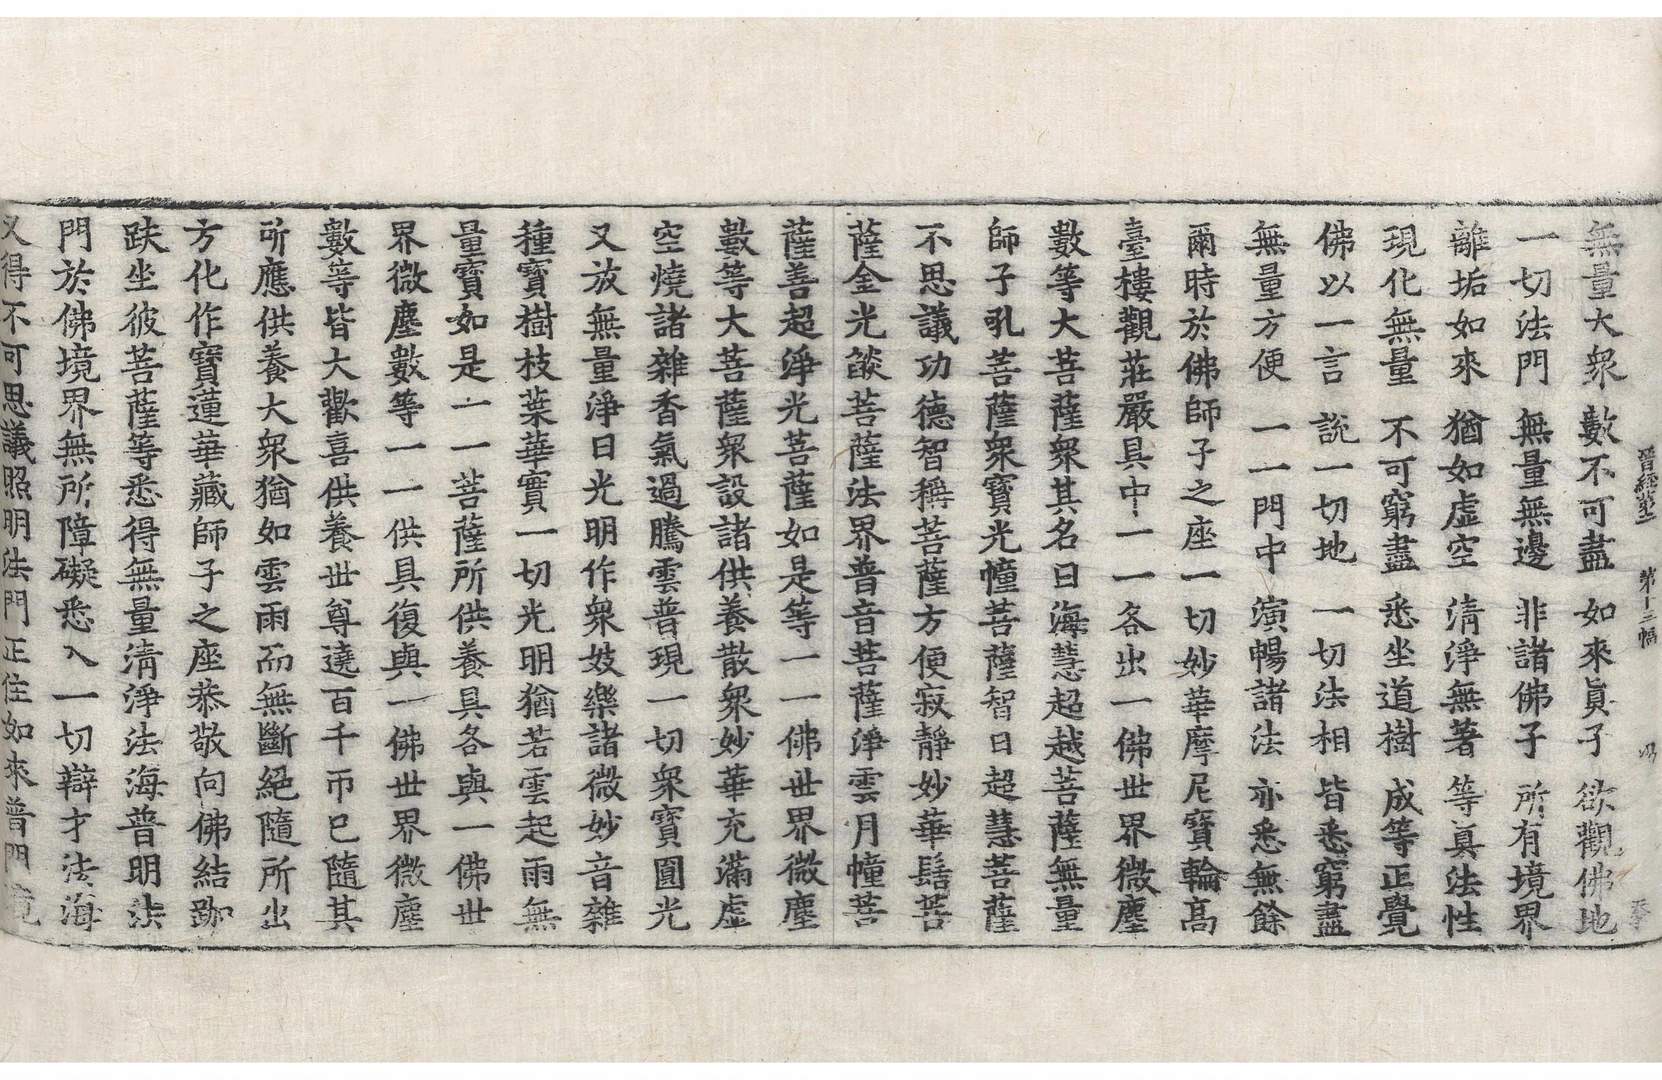 晉經第二 第十三幅
無量大衆 數不可盡 如來眞子 欲觀佛地
一切法門 無量無邊 非諸佛子 所有境界
離垢如來 猶如虛空 淸淨無著 等眞法性
現化無量 不可窮盡 悉坐道樹 成等正覺
佛以一言 說一切地 一切法相 皆悉窮盡
無量方便 一一門中 演暢諸法 亦悉無餘
爾時於佛師子之座一切妙華摩尼寶輪高
臺樓觀莊嚴具中一一各出一佛世界微塵
數等大菩薩衆其名曰海慧超越菩薩無量
師子吼菩薩衆寶光幢菩薩智日超慧菩薩
不思議功德智稱菩薩方便寂靜妙華髻菩
薩金光焰菩薩法界普音菩薩淨雲月幢菩
薩善超淨光菩薩如是等一一佛世界微塵
數等大菩薩衆設諸供養散衆妙華充滿虛
空燒諸雜香氣過騰雲普現一切衆寶圓光
又放無量淨日光明作衆妓樂諸微妙音雜
種寶樹枝葉華實一切光明猶若雲起雨無
量寶如是一一菩薩所供養具各與一佛世
界微塵數等一一供具復與一佛世界微塵
數等皆大歡喜供養世尊遶百千帀已隨其
所應供養大衆猶如雲雨而無斷絕隨所出
方化作寶蓮華藏師子之座恭敬向佛結跏
趺坐彼菩薩等悉得無量淸淨法海普明法
門於佛境界無所障礙悉入一切辯才法海
又得不可思議照明法門正住如來普門境